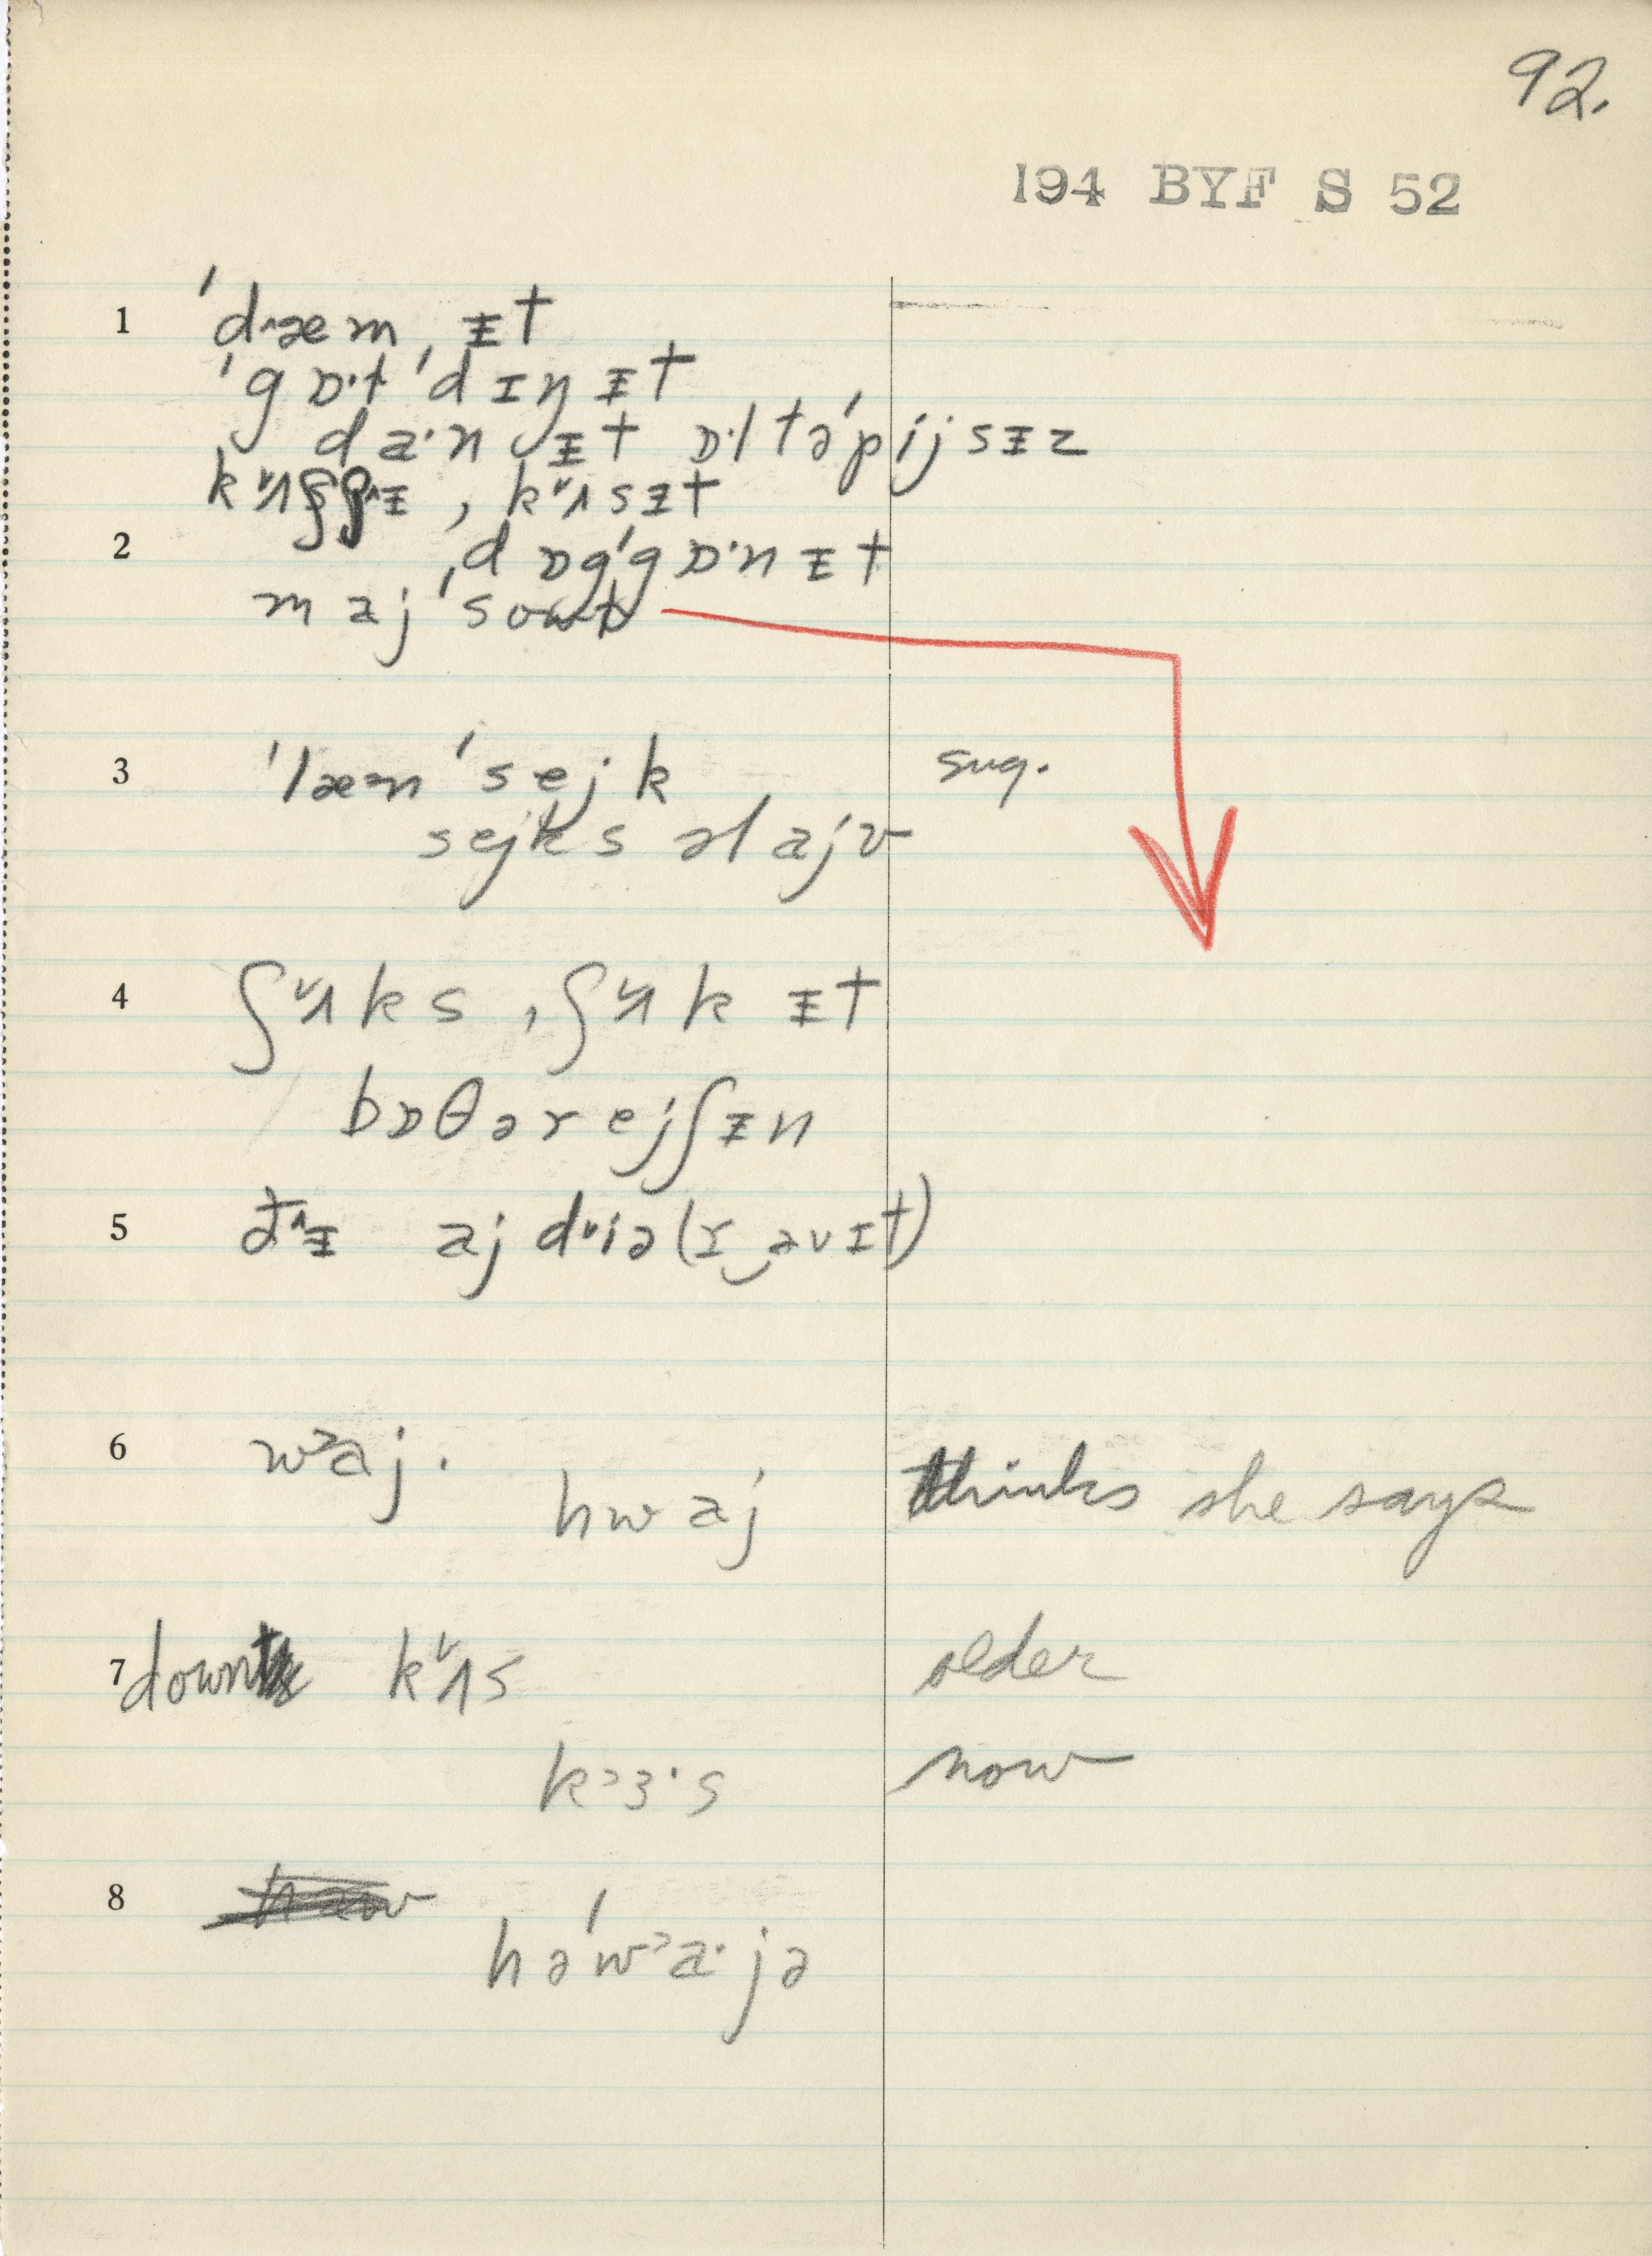 92.
194 BYF S 52
1 ˈdæm, ɪ̵t
ˈgɒˑtˈdɪŋ ɪ̵t
daˑn ɪ̵t ɒˑl təˈpijsɪ̵z
, k˅ʌsɪ̵t
2 ˌdɒgˈgɒˑn ɪ̵t
maj ˈsowl
3 ˈlæn ˈsejk sug.
sejks əlajv
4 ʃ˅ʌks, ʃ˅ʌk ɪ̵t
bɒθərejʃɪ̵n
5 aj d˅iə(r‿əvɪt)
6 w˃aj. hwaj thinks she says
7 down k˅ʌs older
k˃ɜˑs now
8 həˈw˃aˑjə